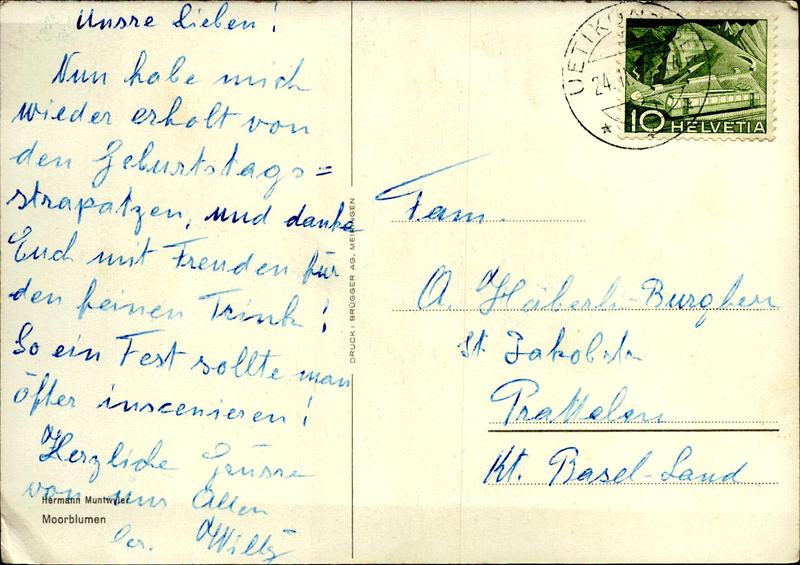 Unsre Lieben!
Nun habe mich
wieder erholt von
den Geburtstags=
strapatzen, und danke
Euch mit Freuden für
den feinen Trink!
So ein Fest sollte man
öfter inscenieren!
Herzliche Grüsse
von uns Allen
Willy
Hermann Muntwyler
Moorblumen
DRUCK: BRÜGGER AG, MEIRINGEN
UETIKON
24.
10 HELVETIA
Fam.
A. Häberli-Burgherr
St. Jakobstr
Prattelen
Kt. Basel-Land